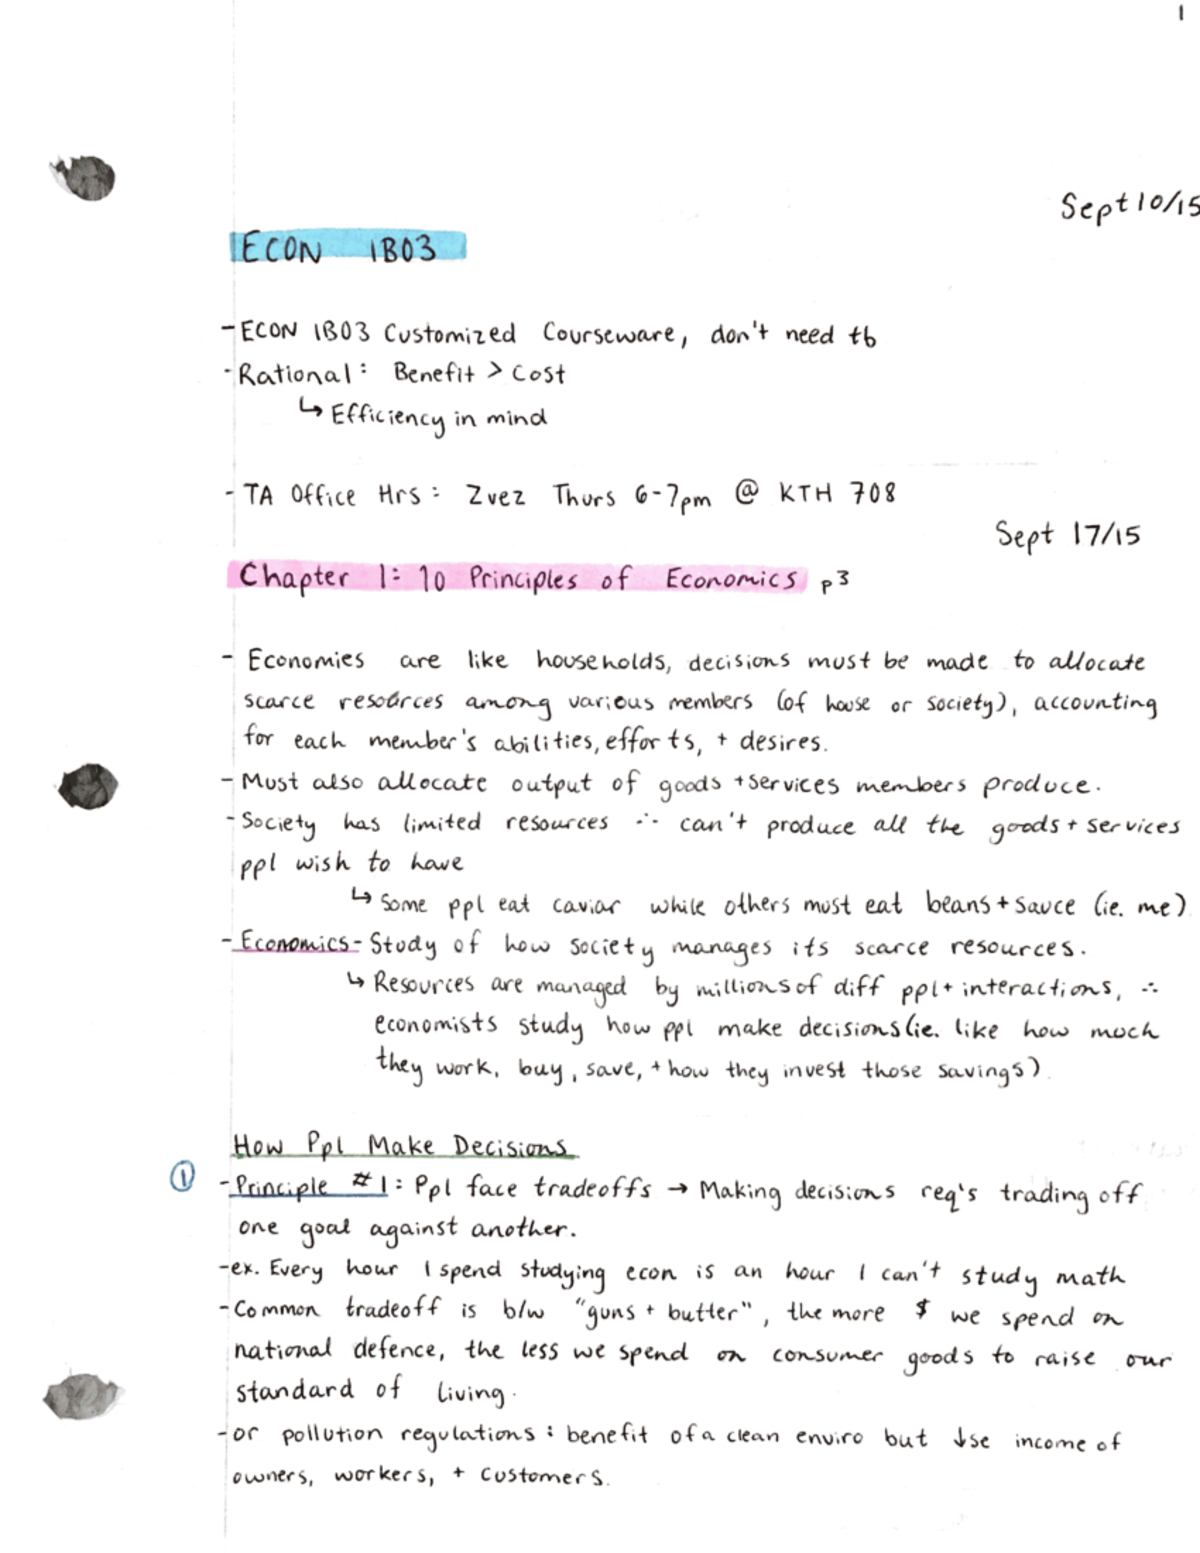 1
Sept 10/15
ECON 1B03
- ECON 1B03 Customized Courseware, don't need tb
- Rational: Benefit > Cost
↳ Efficiency in mind
- TA Office Hrs: Zvez Thurs 6-7pm @ KTH 708
Sept 17/15
Chapter 1: 10 Principles of Economics p3
- Economies are like households, decisions must be made to allocate
scarce resources among various members (of house or society), accounting
for each member's abilities, efforts, + desires.
- Must also allocate output of goods + services members produce.
- Society has limited resources ∴ can't produce all the goods + services
ppl wish to have
↳ Some ppl eat caviar while others must eat beans + sauce (ie. me)
- Economics - Study of how society manages its scarce resources.
↳ Resources are managed by millions of diff ppl + interactions, ∴
economists study how ppl make decisions (ie. like how much
they work, buy, save, + how they invest those savings)
How Ppl Make Decisions
① - Principle #1: Ppl face tradeoffs → Making decisions req's trading off
one goal against another.
- ex. Every hour I spend studying econ is an hour I can't study math
- Common tradeoff is b/w "guns + butter", the more $ we spend on
national defence, the less we spend on consumer goods to raise our
standard of living.
- or pollution regulations: benefit of a clean enviro but ↓se income of
owners, workers, + customers.